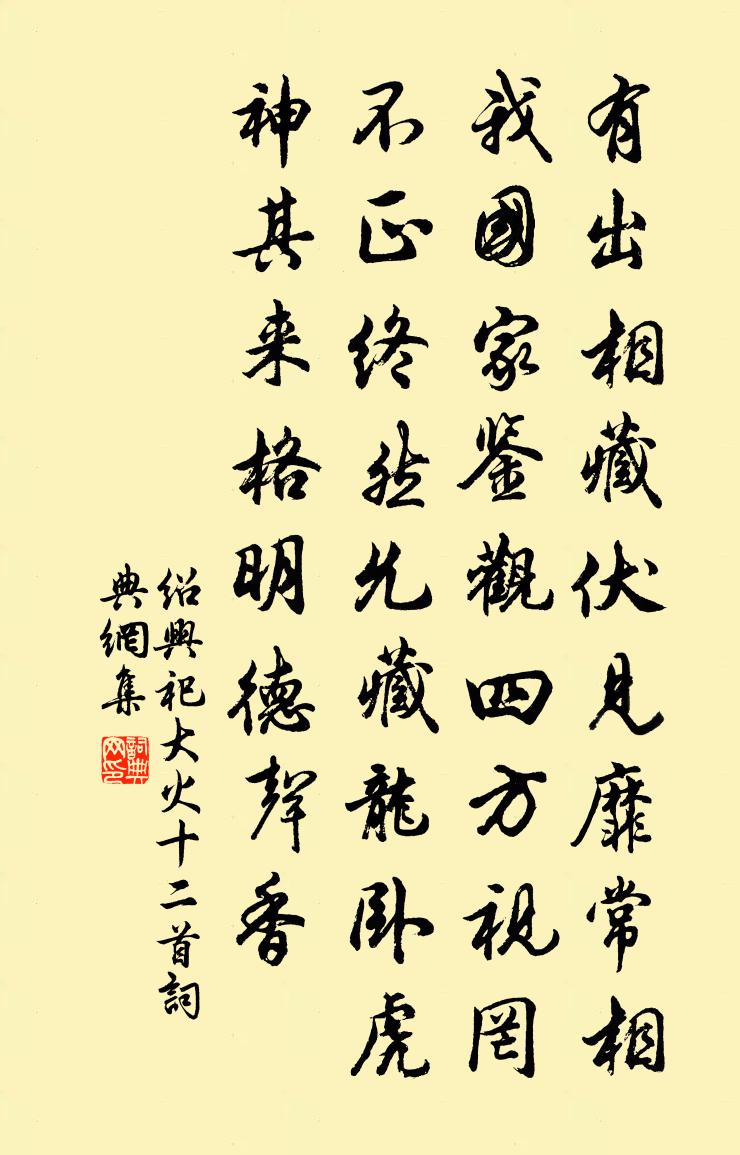 有出相藏伏見靡常相
我國家鑒觀四方視罔
不正終然允藏龍卧虎
神其来格明德聲香
紹興祀大火十二首詞
典網集
詞典網印